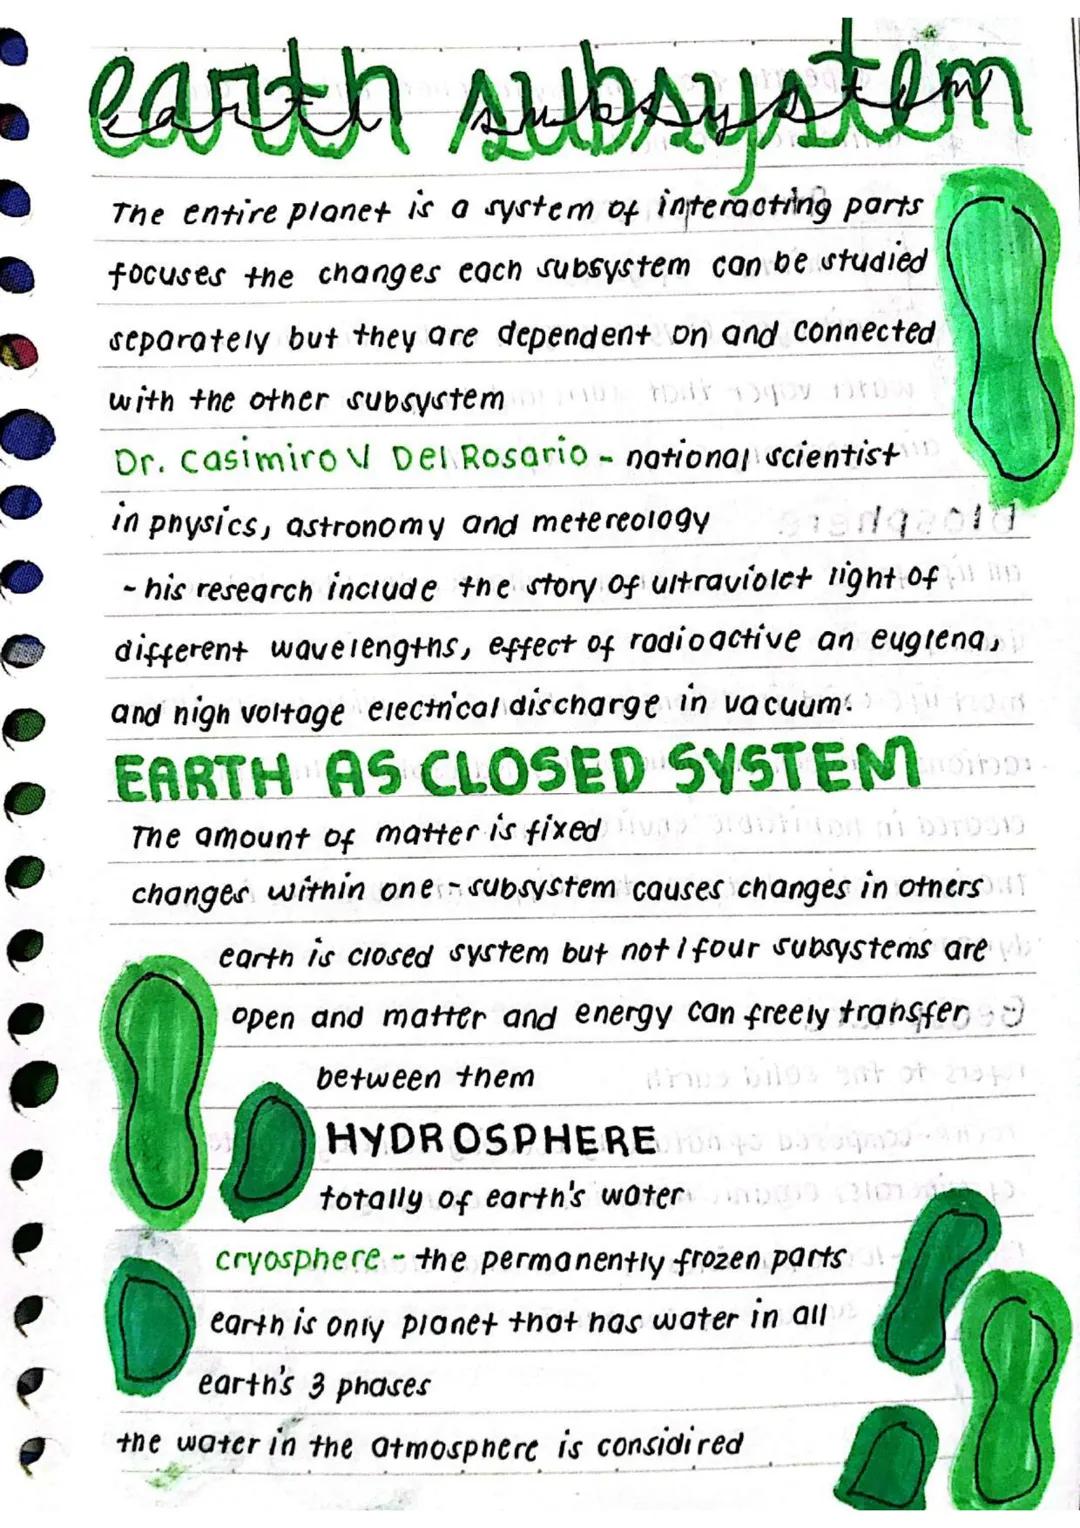 earth subsystem
The entire planet is a system of interacting parts
focuses the changes each subsystem can be studied
separately but they are dependent on and connected
with the other subsystem
Dr. Casimiro V Del Rosario - national scientist
in physics, astronomy and metereology
- his research include the story of ultraviolet light of
different wavelengths, effect of radioactive an euglena,
and high voltage electrical discharge in vacuum.
EARTH AS CLOSED SYSTEM
The amount of matter is fixed
changes within one - subsystem causes changes in others
earth is closed system but not / four subsystems are
open and matter and energy can freely transfer
between them
HYDROSPHERE
totally of earth's water
cryosphere - the permanently frozen parts
earth is only planet that has water in all
earth's 3 phases
the water in the atmosphere is considired